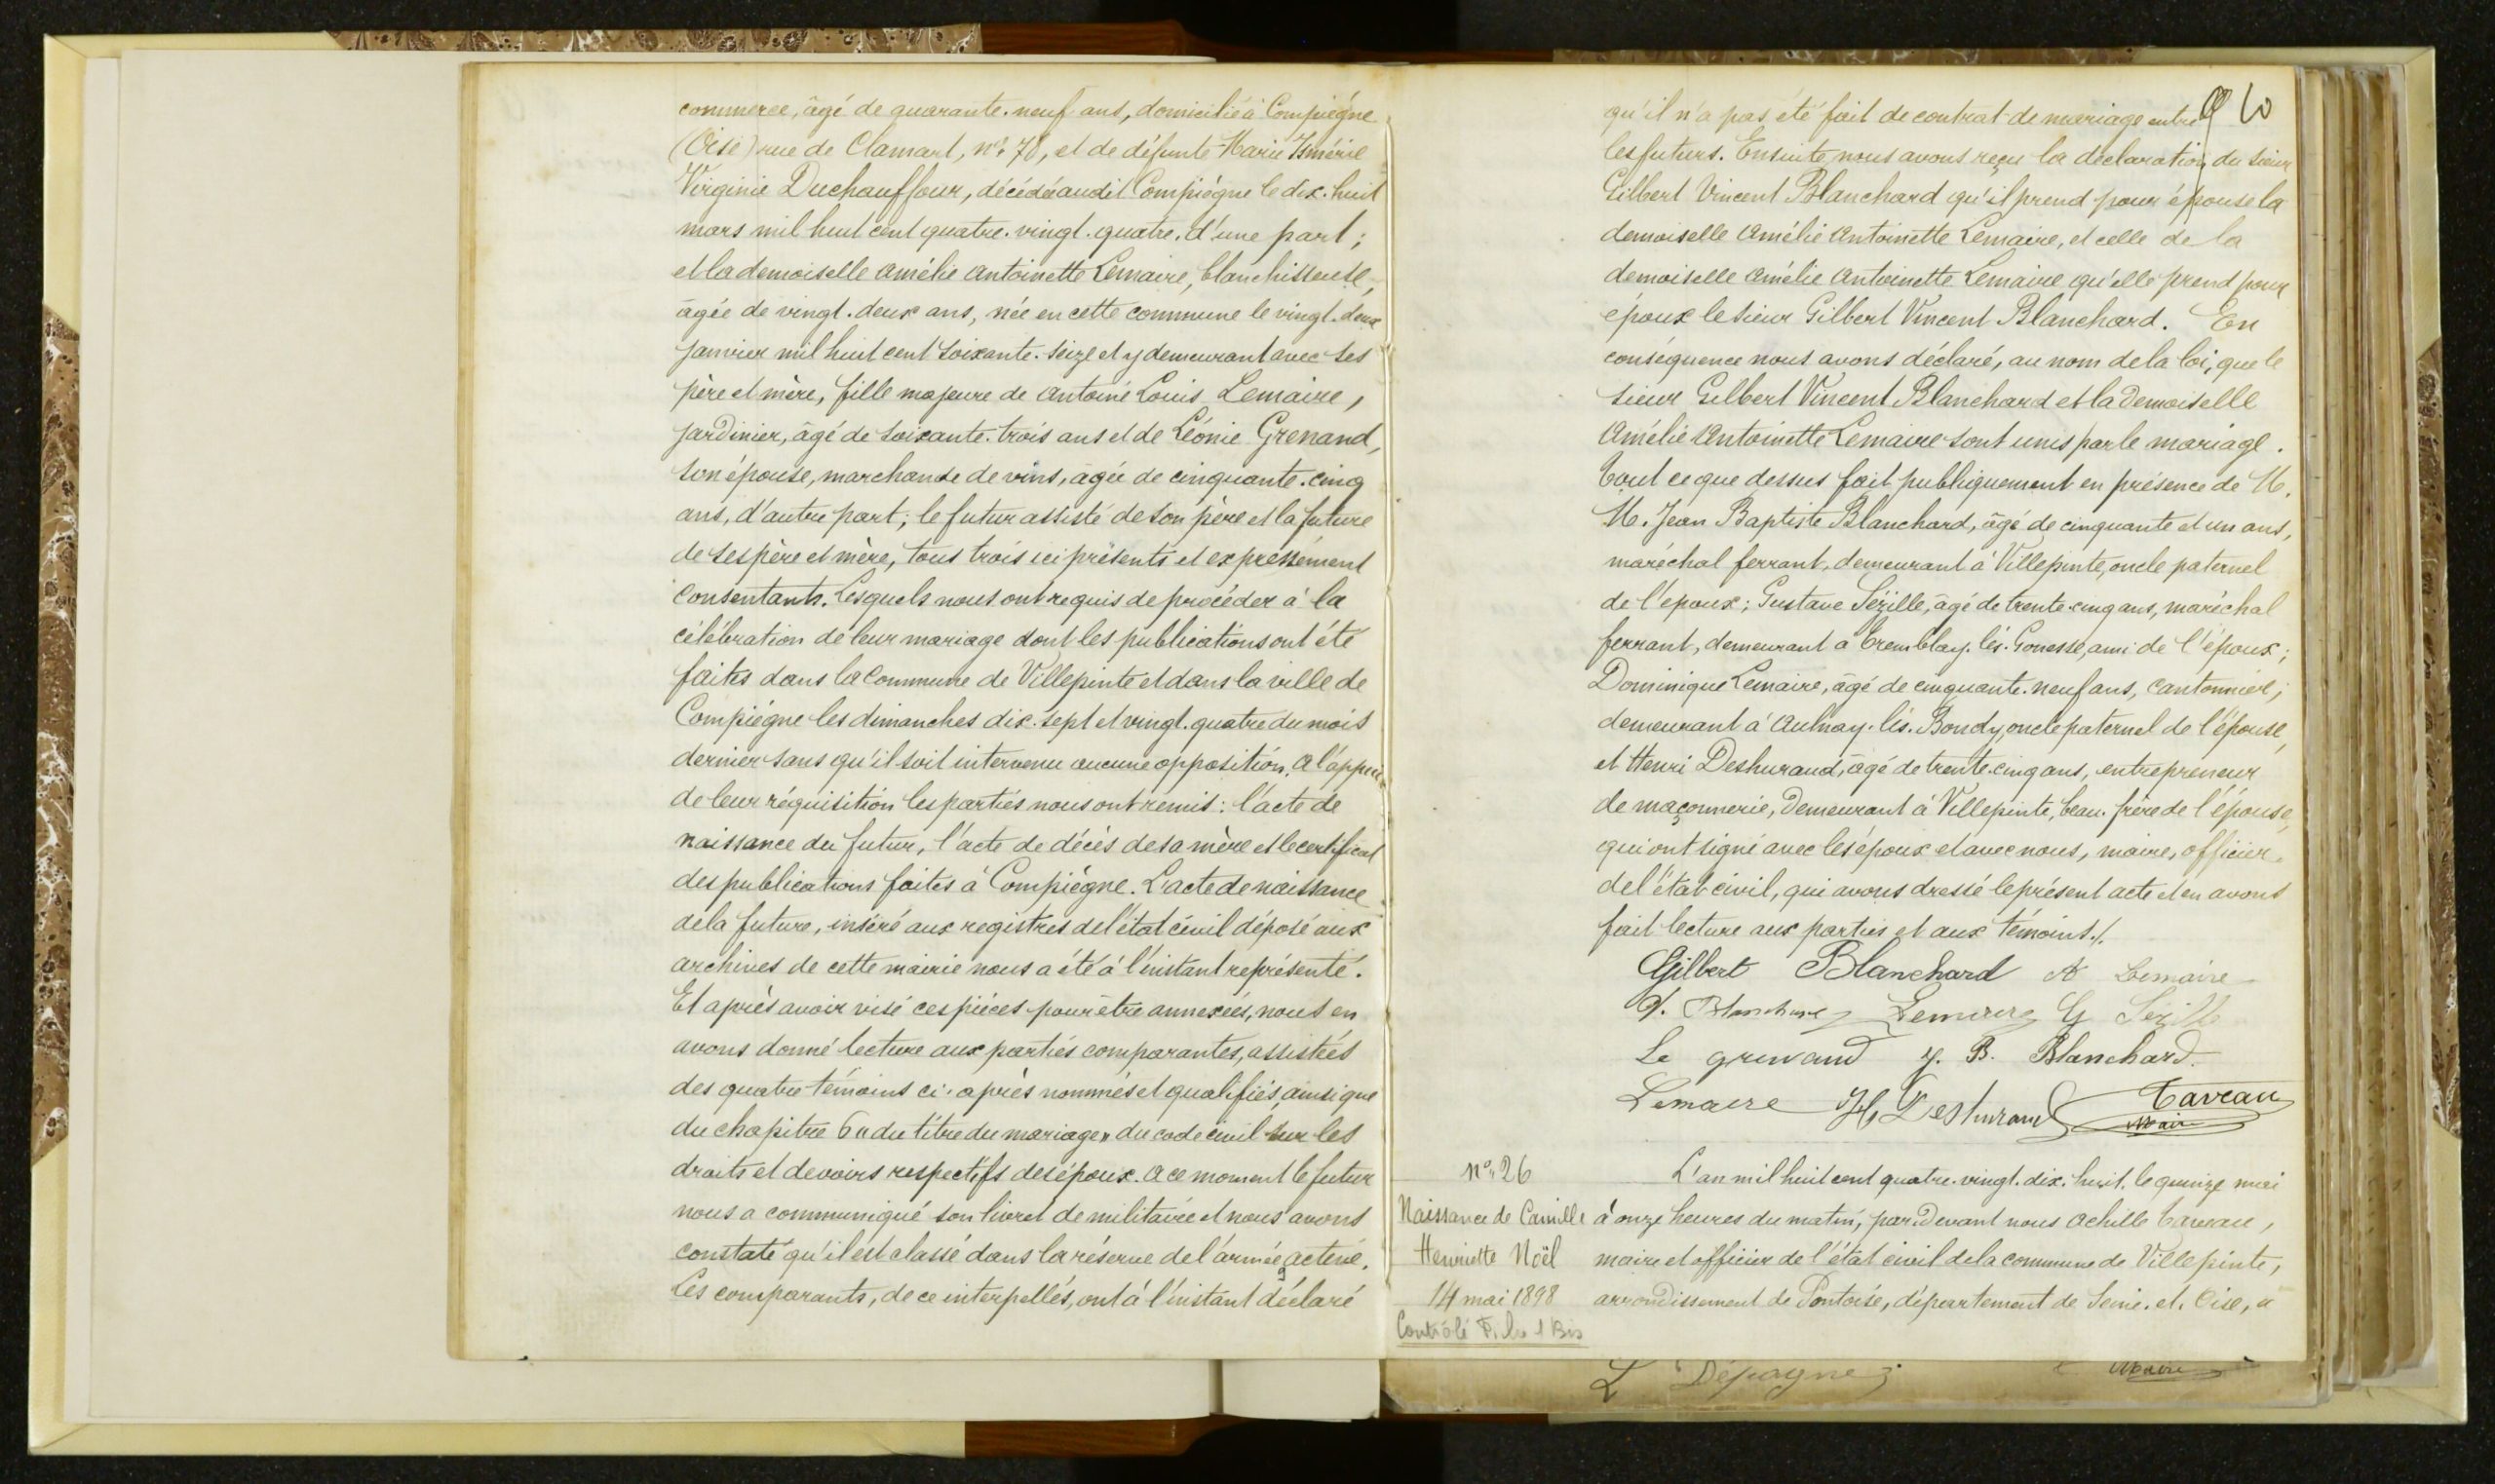 commerce, âgé de quarante-neuf ans, domicilié à Compiègne
(Oise) rue de Clamart, n° 78, et de défunte Marie Ismérie
Virginie Duchauffour, décédée audit Compiègne le dix-huit
mars mil huit cent quatre-vingt-quatre, d'une part;
et la demoiselle Amélie Antoinette Lemaire, blanchisseuse,
âgée de vingt-deux ans, née en cette commune le vingt-deux
janvier mil huit cent soixante-seize et y demeurant avec ses
père et mère, fille majeure de Antoine Louis Lemaire,
jardinier, âgé de soixante-trois ans et de Léonie Grenand,
son épouse, marchande de vins, âgée de cinquante-cinq
ans, d'autre part; le futur assisté de son père et la future
de ses père et mère, tous trois ici présents et expressément
consentants. Lesquels nous ont requis de procéder à la
célébration de leur mariage dont les publications ont été
faites dans la commune de Villepinte et dans la ville de
Compiègne les dimanches dix-sept et vingt-quatre du mois
dernier sans qu'il soit intervenu aucune opposition. A l'appui
de leur réquisition les parties nous ont remis: l'acte de
naissance du futur, l'acte de décès de sa mère et le certificat
des publications faites à Compiègne. L'acte de naissance
de la future, inséré aux registres de l'état civil déposé aux
archives de cette mairie nous a été à l'instant représenté.
Et après avoir visé ces pièces pour être annexées, nous en
avons donné lecture aux parties comparantes, assistées
des quatre témoins ci-après nommés et qualifiés, ainsi que
du chapitre 6 "du titre du mariage" du code civil sur les
droits et devoirs respectifs des époux. A ce moment le futur
nous a communiqué son livret de militaire et nous avons
constaté qu'il est classé dans la réserve de l'armée active.
Les comparants, de ce interpellés, ont à l'instant déclaré
qu'il n'a pas été fait de contrat de mariage entre
les futurs. Ensuite nous avons reçu la déclaration du sieur
Gilbert Vincent Blanchard qu'il prend pour épouse la
demoiselle Amélie Antoinette Lemaire, et celle de la
demoiselle Amélie Antoinette Lemaire qu'elle prend pour
époux le sieur Gilbert Vincent Blanchard. En
conséquence nous avons déclaré, au nom de la loi, que le
sieur Gilbert Vincent Blanchard et la demoiselle
Amélie Antoinette Lemaire sont unis par le mariage.
Tout ce que dessus fait publiquement en présence de M.
M. Jean Baptiste Blanchard, âgé de cinquante et un ans,
maréchal ferrant, demeurant à Villepinte, oncle paternel
de l'époux; Gustave Sézille, âgé de trente-cinq ans, maréchal
ferrant, demeurant à Tremblay-lès-Gonesse, ami de l'époux;
Dominique Lemaire, âgé de cinquante-neuf ans, cantonnier,
demeurant à Aulnay-lès-Bondy, oncle paternel de l'épouse,
et Henri Deshuraud, âgé de trente-cinq ans, entrepreneur
de maçonnerie, demeurant à Villepinte, beau-frère de l'épouse,
qui ont signé avec les époux et avec nous, maire, officier
de l'état civil, qui avons dressé le présent acte et en avons
fait lecture aux parties et aux témoins./.
Gilbert Blanchard A Lemaire
Blanchard Lemaire G Sézille
Le grenand J. B. Blanchard
Lemaire H Deshuraud Taveau
Maire
N° 26
Naissance de Camille
Henriette Noël
14 mai 1898
Contrôlé Fiche 1 Bis
L'an mil huit cent quatre-vingt-dix-huit, le quinze mai
à onze heures du matin, par devant nous Achille Taveau,
maire et officier de l'état civil de la commune de Villepinte,
arrondissement de Pontoise, département de Seine-et-Oise, a
L Dépagne
Maire